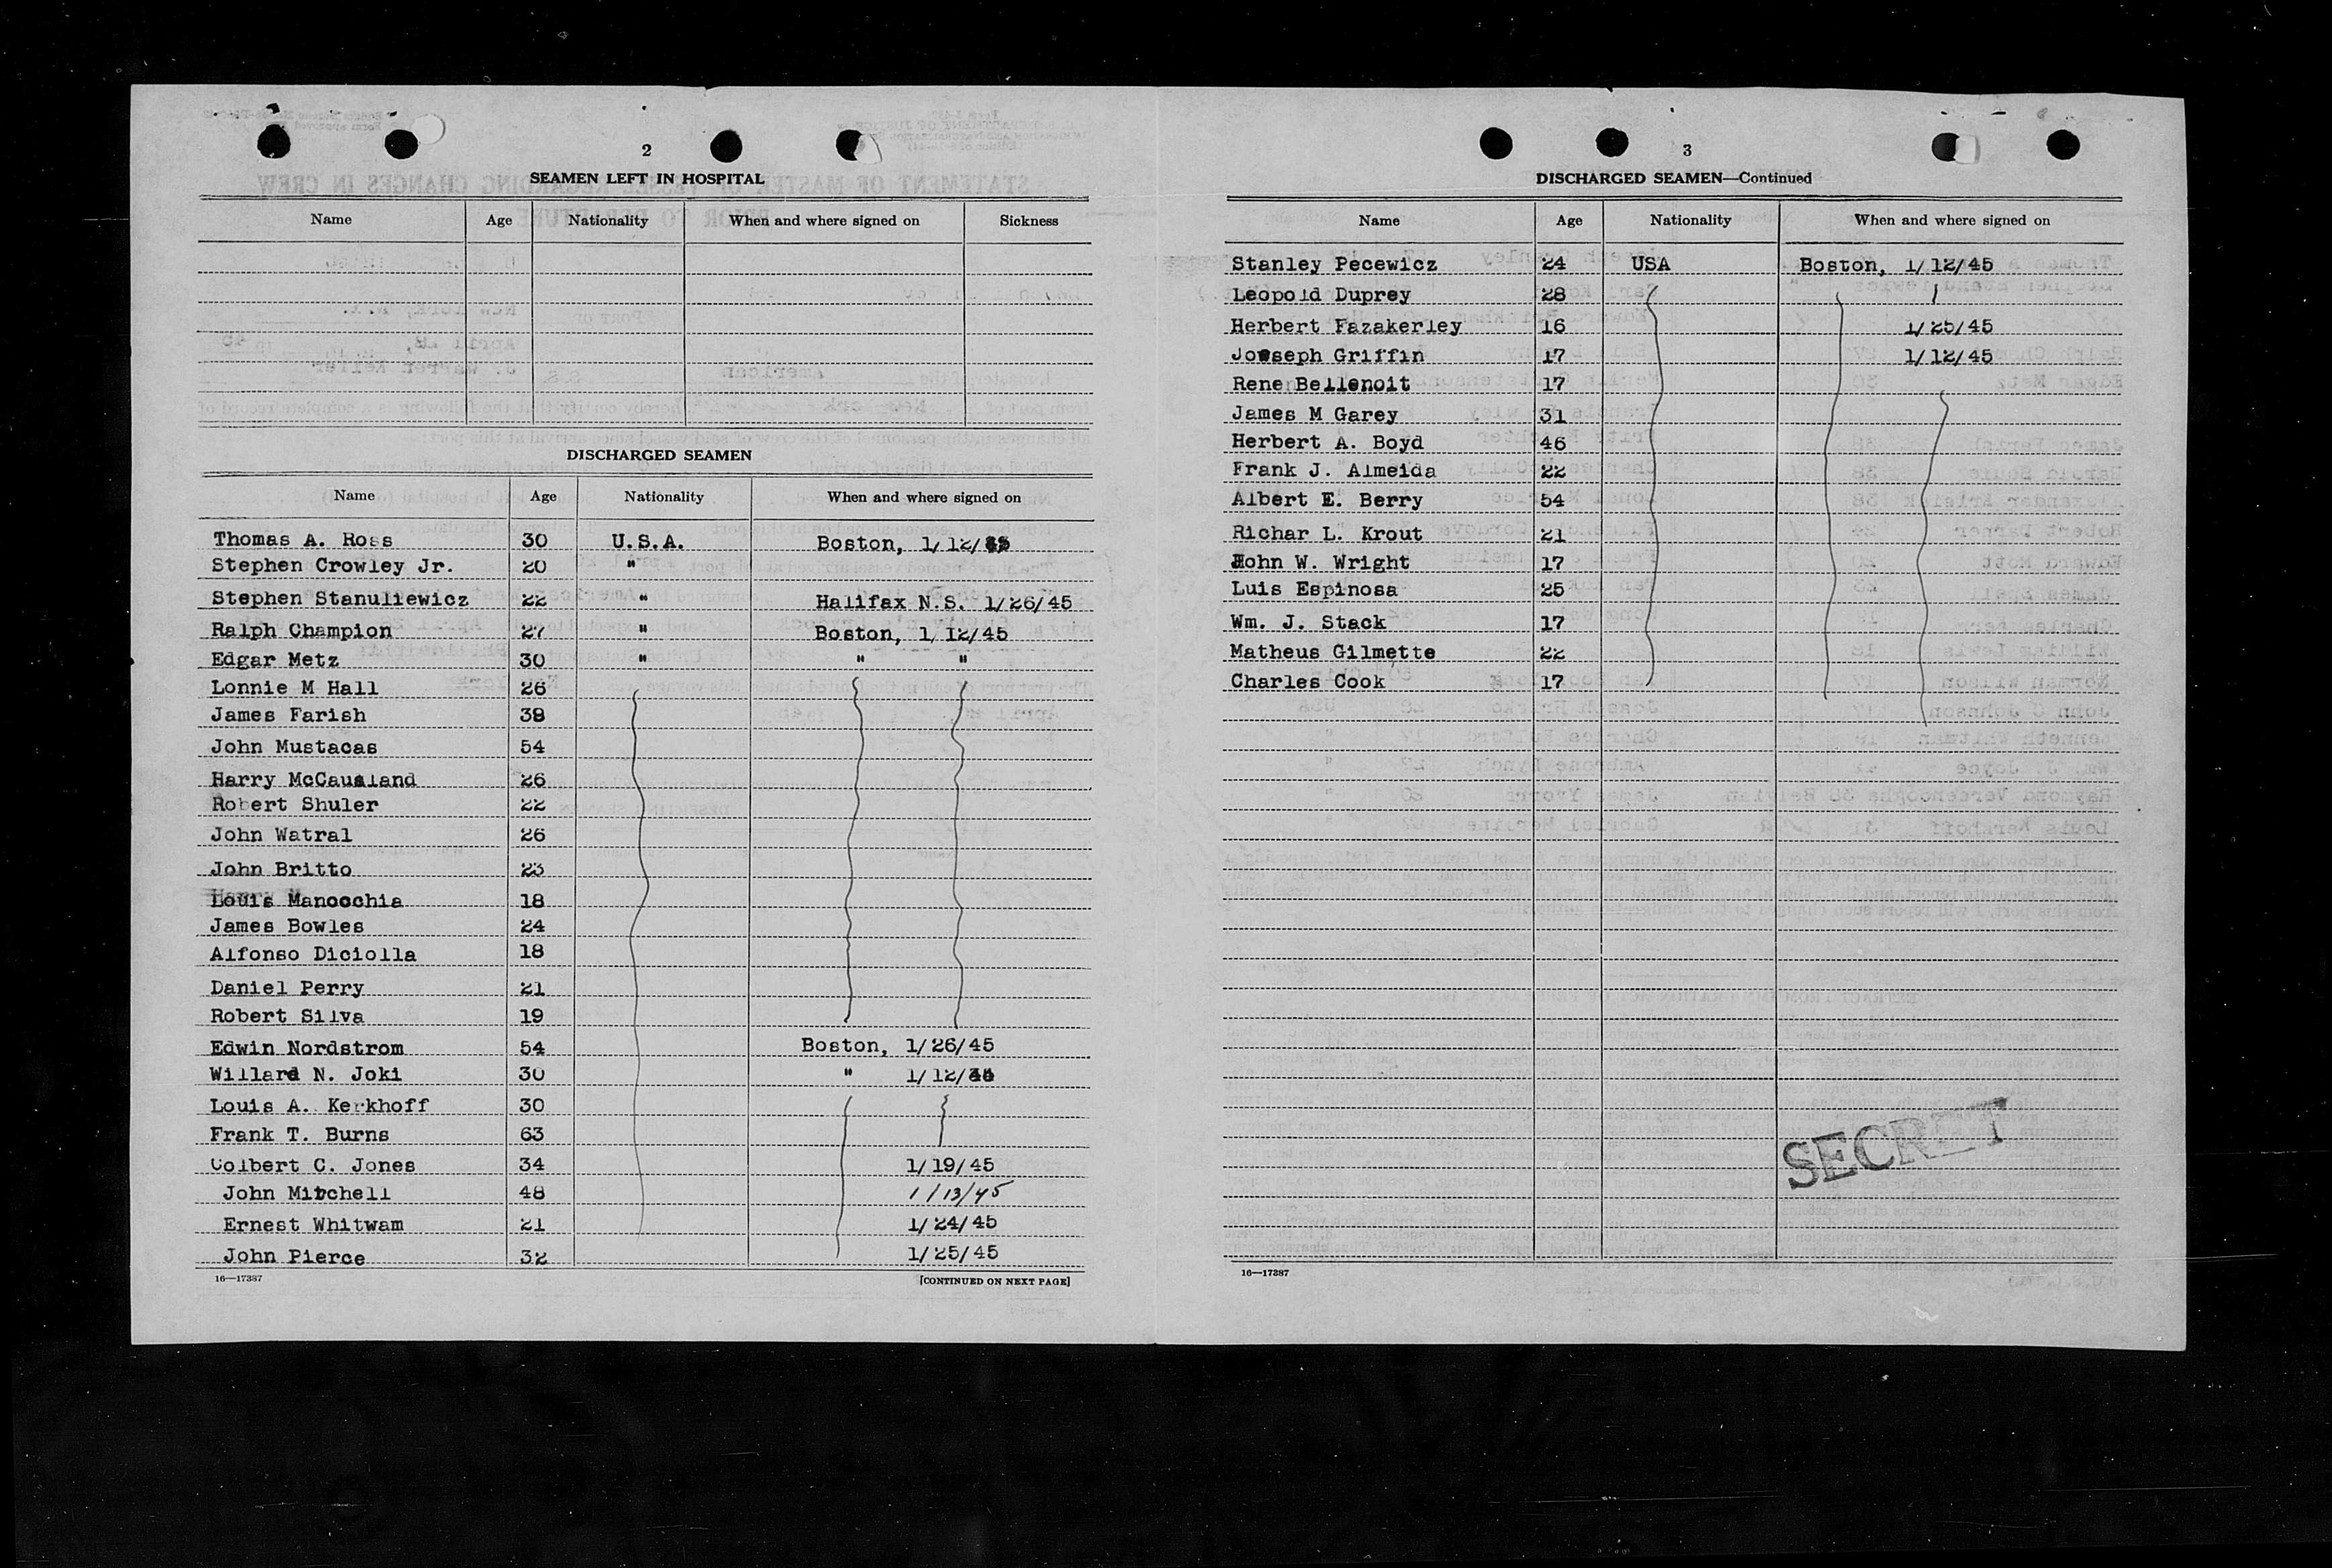 2
SEAMEN LEFT IN HOSPITAL
Name Age Nationality When and where signed on Sickness
DISCHARGED SEAMEN
Name Age Nationality When and where signed on
Thomas A. Ross 30 U.S.A. Boston, 1/12/45
Stephen Crowley Jr. 20 "
Stephen Stanuliewicz 22 " Halifax N.S. 1/26/45
Ralph Champion 27 " Boston, 1/12/45
Edgar Metz 30 " " "
Lonnie M Hall 26
James Farish 38
John Mustacas 54
Harry McCausland 26
Robert Shuler 22
John Watral 26
John Britto 23
Louis Manocchia 18
James Bowles 24
Alfonso Diciolla 18
Daniel Perry 21
Robert Silva 19
Edwin Nordstrom 54 Boston, 1/26/45
Willard N. Joki 30 " 1/12/45
Louis A. Kerkhoff 30
Frank T. Burns 63
Colbert C. Jones 34 1/19/45
John Mitchell 48 1/13/45
Ernest Whitwam 21 1/24/45
John Pierce 32 1/25/45
16—17387 [CONTINUED ON NEXT PAGE]
3
DISCHARGED SEAMEN—Continued
Name Age Nationality When and where signed on
Stanley Pecewicz 24 USA Boston, 1/12/45
Leopold Duprey 28
Herbert Fazakerley 16 1/25/45
Jowseph Griffin 17 1/12/45
Rene Bellenoit 17
James M Garey 31
Herbert A. Boyd 46
Frank J. Almeida 22
Albert E. Berry 54
Richar L. Krout 21
John W. Wright 17
Luis Espinosa 25
Wm. J. Stack 17
Matheus Gilmette 22
Charles Cook 17
SECRET
16—17387